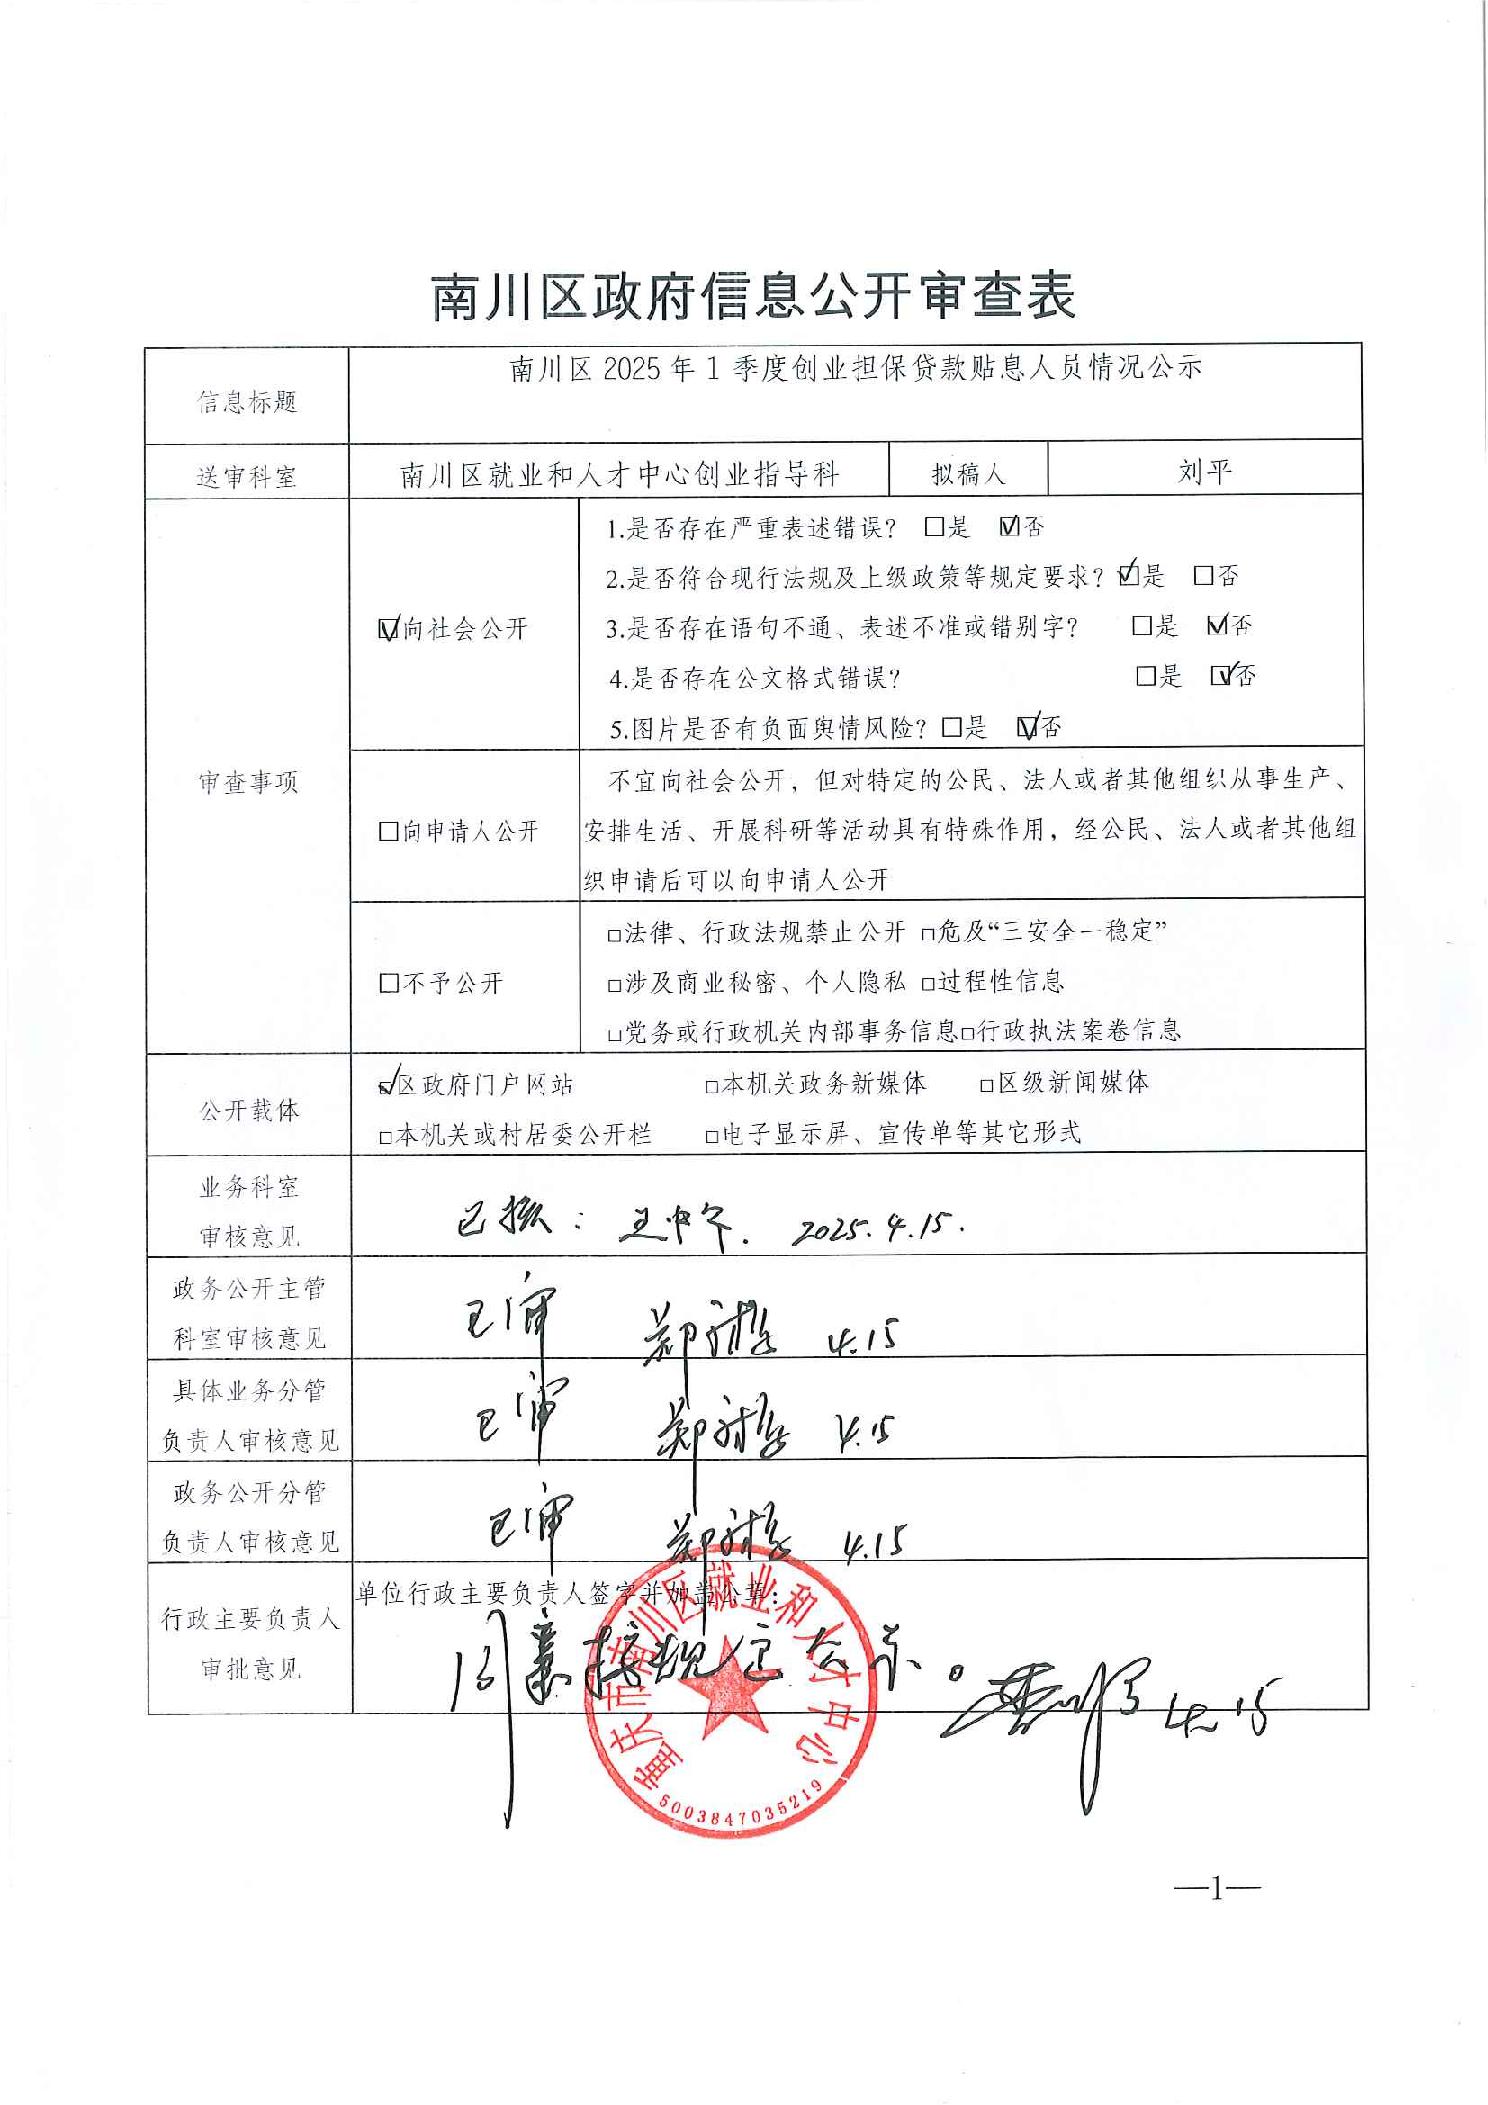 南川区政府信息公开审查表
信息标题
南川区 2025 年 1 季度创业担保贷款贴息人员情况公示
送审科室 南川区就业和人才中心创业指导科 拟稿人 刘平
审查事项
☑向社会公开
1.是否存在严重表述错误？ □是 ☑否
2.是否符合现行法规及上级政策等规定要求？☑是 □否
3.是否存在语句不通、表述不准或错别字？ □是 ☑否
4.是否存在公文格式错误？ □是 ☑否
5.图片是否有负面舆情风险？□是 ☑否
□向申请人公开
不宜向社会公开，但对特定的公民、法人或者其他组织从事生产、
安排生活、开展科研等活动具有特殊作用，经公民、法人或者其他组
织申请后可以向申请人公开
□不予公开
□法律、行政法规禁止公开 □危及“三安全一稳定”
□涉及商业秘密、个人隐私 □过程性信息
□党务或行政机关内部事务信息□行政执法案卷信息
公开载体
☑区政府门户网站 □本机关政务新媒体 □区级新闻媒体
□本机关或村居委公开栏 □电子显示屏、宣传单等其它形式
业务科室
审核意见
已核： 2025.4.15.
政务公开主管
科室审核意见
已审 4.15
具体业务分管
负责人审核意见
已审 4.15
政务公开分管
负责人审核意见
已审 4.15
行政主要负责人
审批意见
单位行政主要负责人签字并加盖公章：
同意按规定公示。 4.15
重庆市南川区就业和人才中心
5003847035219
—1—